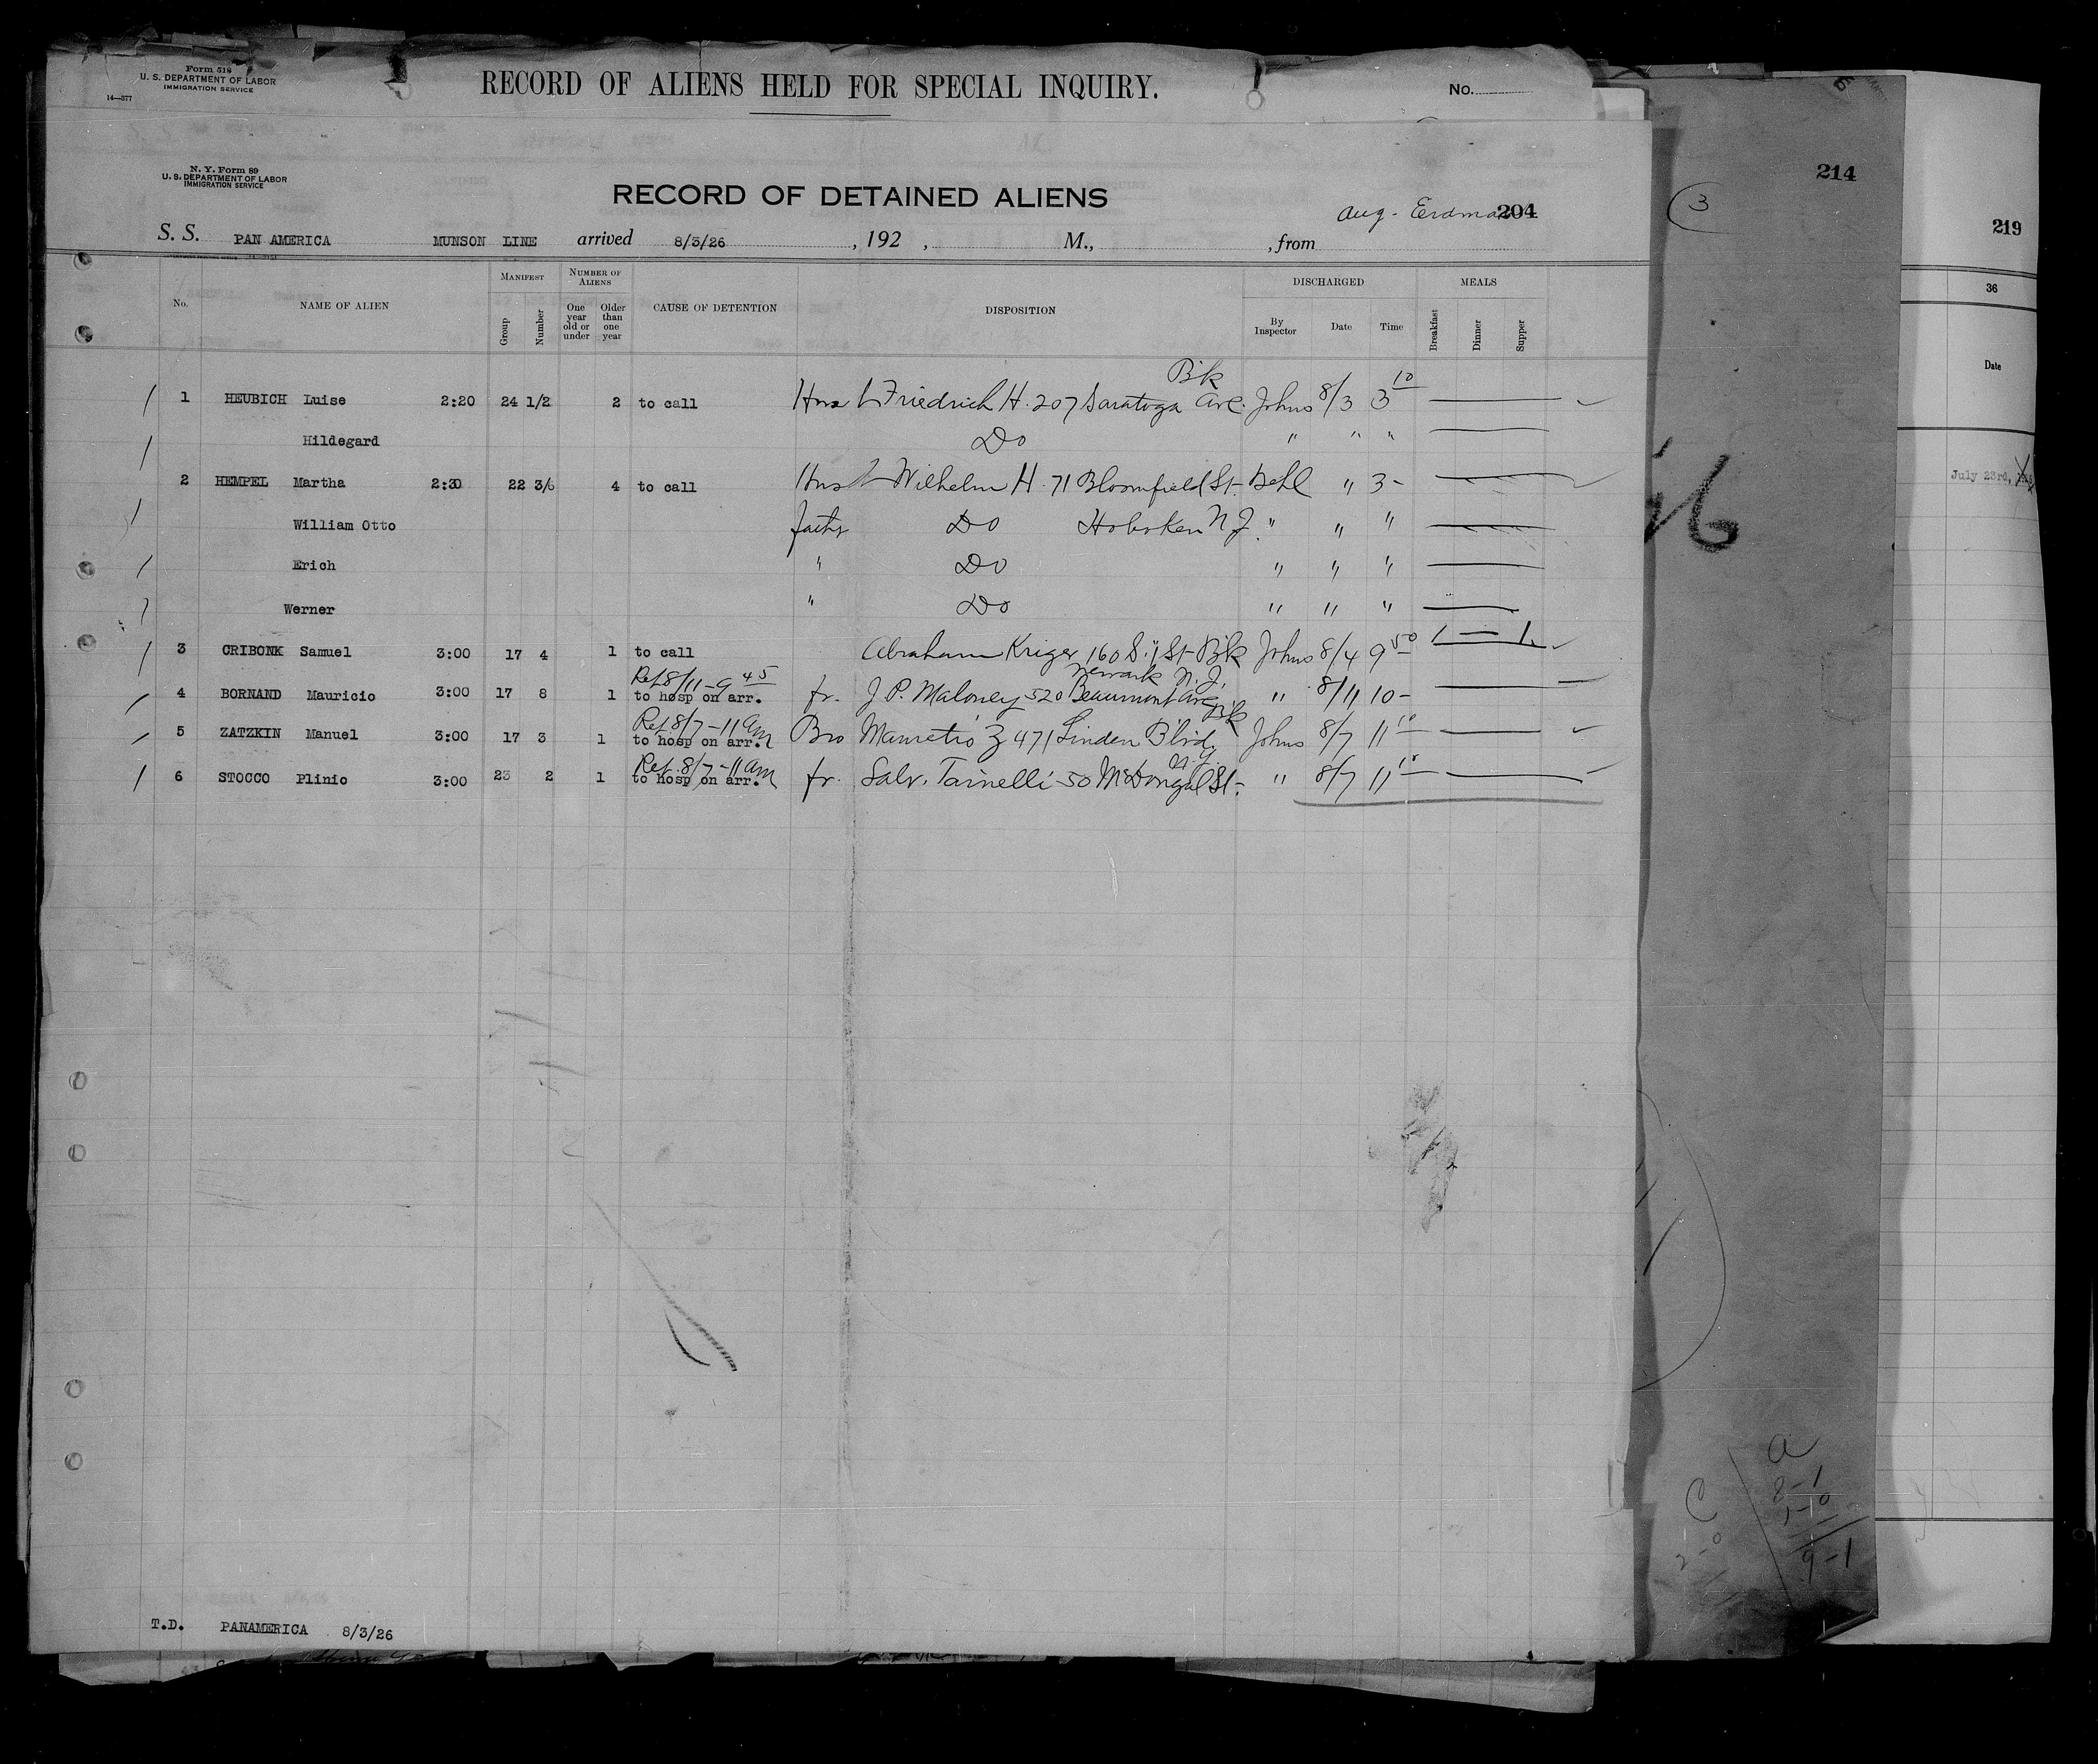 Form 518
U. S. DEPARTMENT OF LABOR
IMMIGRATION SERVICE
14—377
RECORD OF ALIENS HELD FOR SPECIAL INQUIRY.
No.
N. Y. Form 89
U. S. DEPARTMENT OF LABOR
IMMIGRATION SERVICE
RECORD OF DETAINED ALIENS
Aug. Erdman 204
S. S. PAN AMERICA MUNSON LINE arrived 8/3/26, 192 , M., , from
No. NAME OF ALIEN MANIFEST Group Number NUMBER OF ALIENS One year old or under Older than one year CAUSE OF DETENTION DISPOSITION DISCHARGED By Inspector Date Time MEALS Breakfast Dinner Supper
Blk
1 HEUBICH Luise 2:20 24 1/2 2 to call Friedrich H. 207 Saratoga Ave. Johns 8/3 3 10
Hildegard Do " " "
2 HEMPEL Martha 2:30 22 3/6 4 to call Wilhelm H. 71 Bloomfield St. " 3 -
William Otto Do Hoboken N J. " " "
Erich " Do " " "
Werner " Do " " "
3 CRIBONK Samuel 3:00 17 4 1 to call Abraham Kriger 160 St Johns 8/4 9 50 1 — 1
Ref 8/11 - 9 45 Newark N. J.
4 BORNAND Mauricio 3:00 17 8 1 to hosp on arr. fr. J. P. Maloney 520 Beaumont Ave " 8/11 10 -
Ref 8/7 - 11 am
5 ZATZKIN Manuel 3:00 17 3 1 to hosp on arr. Bro Mauretio Z 471 Linden Blvd Johns 8/7 11 10
Ref 8/7 - 11 am
6 STOCCO Plinio 3:00 23 2 1 to hosp on arr. fr. Salv. Tainelli 50 McDougal St. " 8/7 11
T.D. PANAMERICA 8/3/26
3
214
C
a
9-1
219
36
Date
July 23rd,